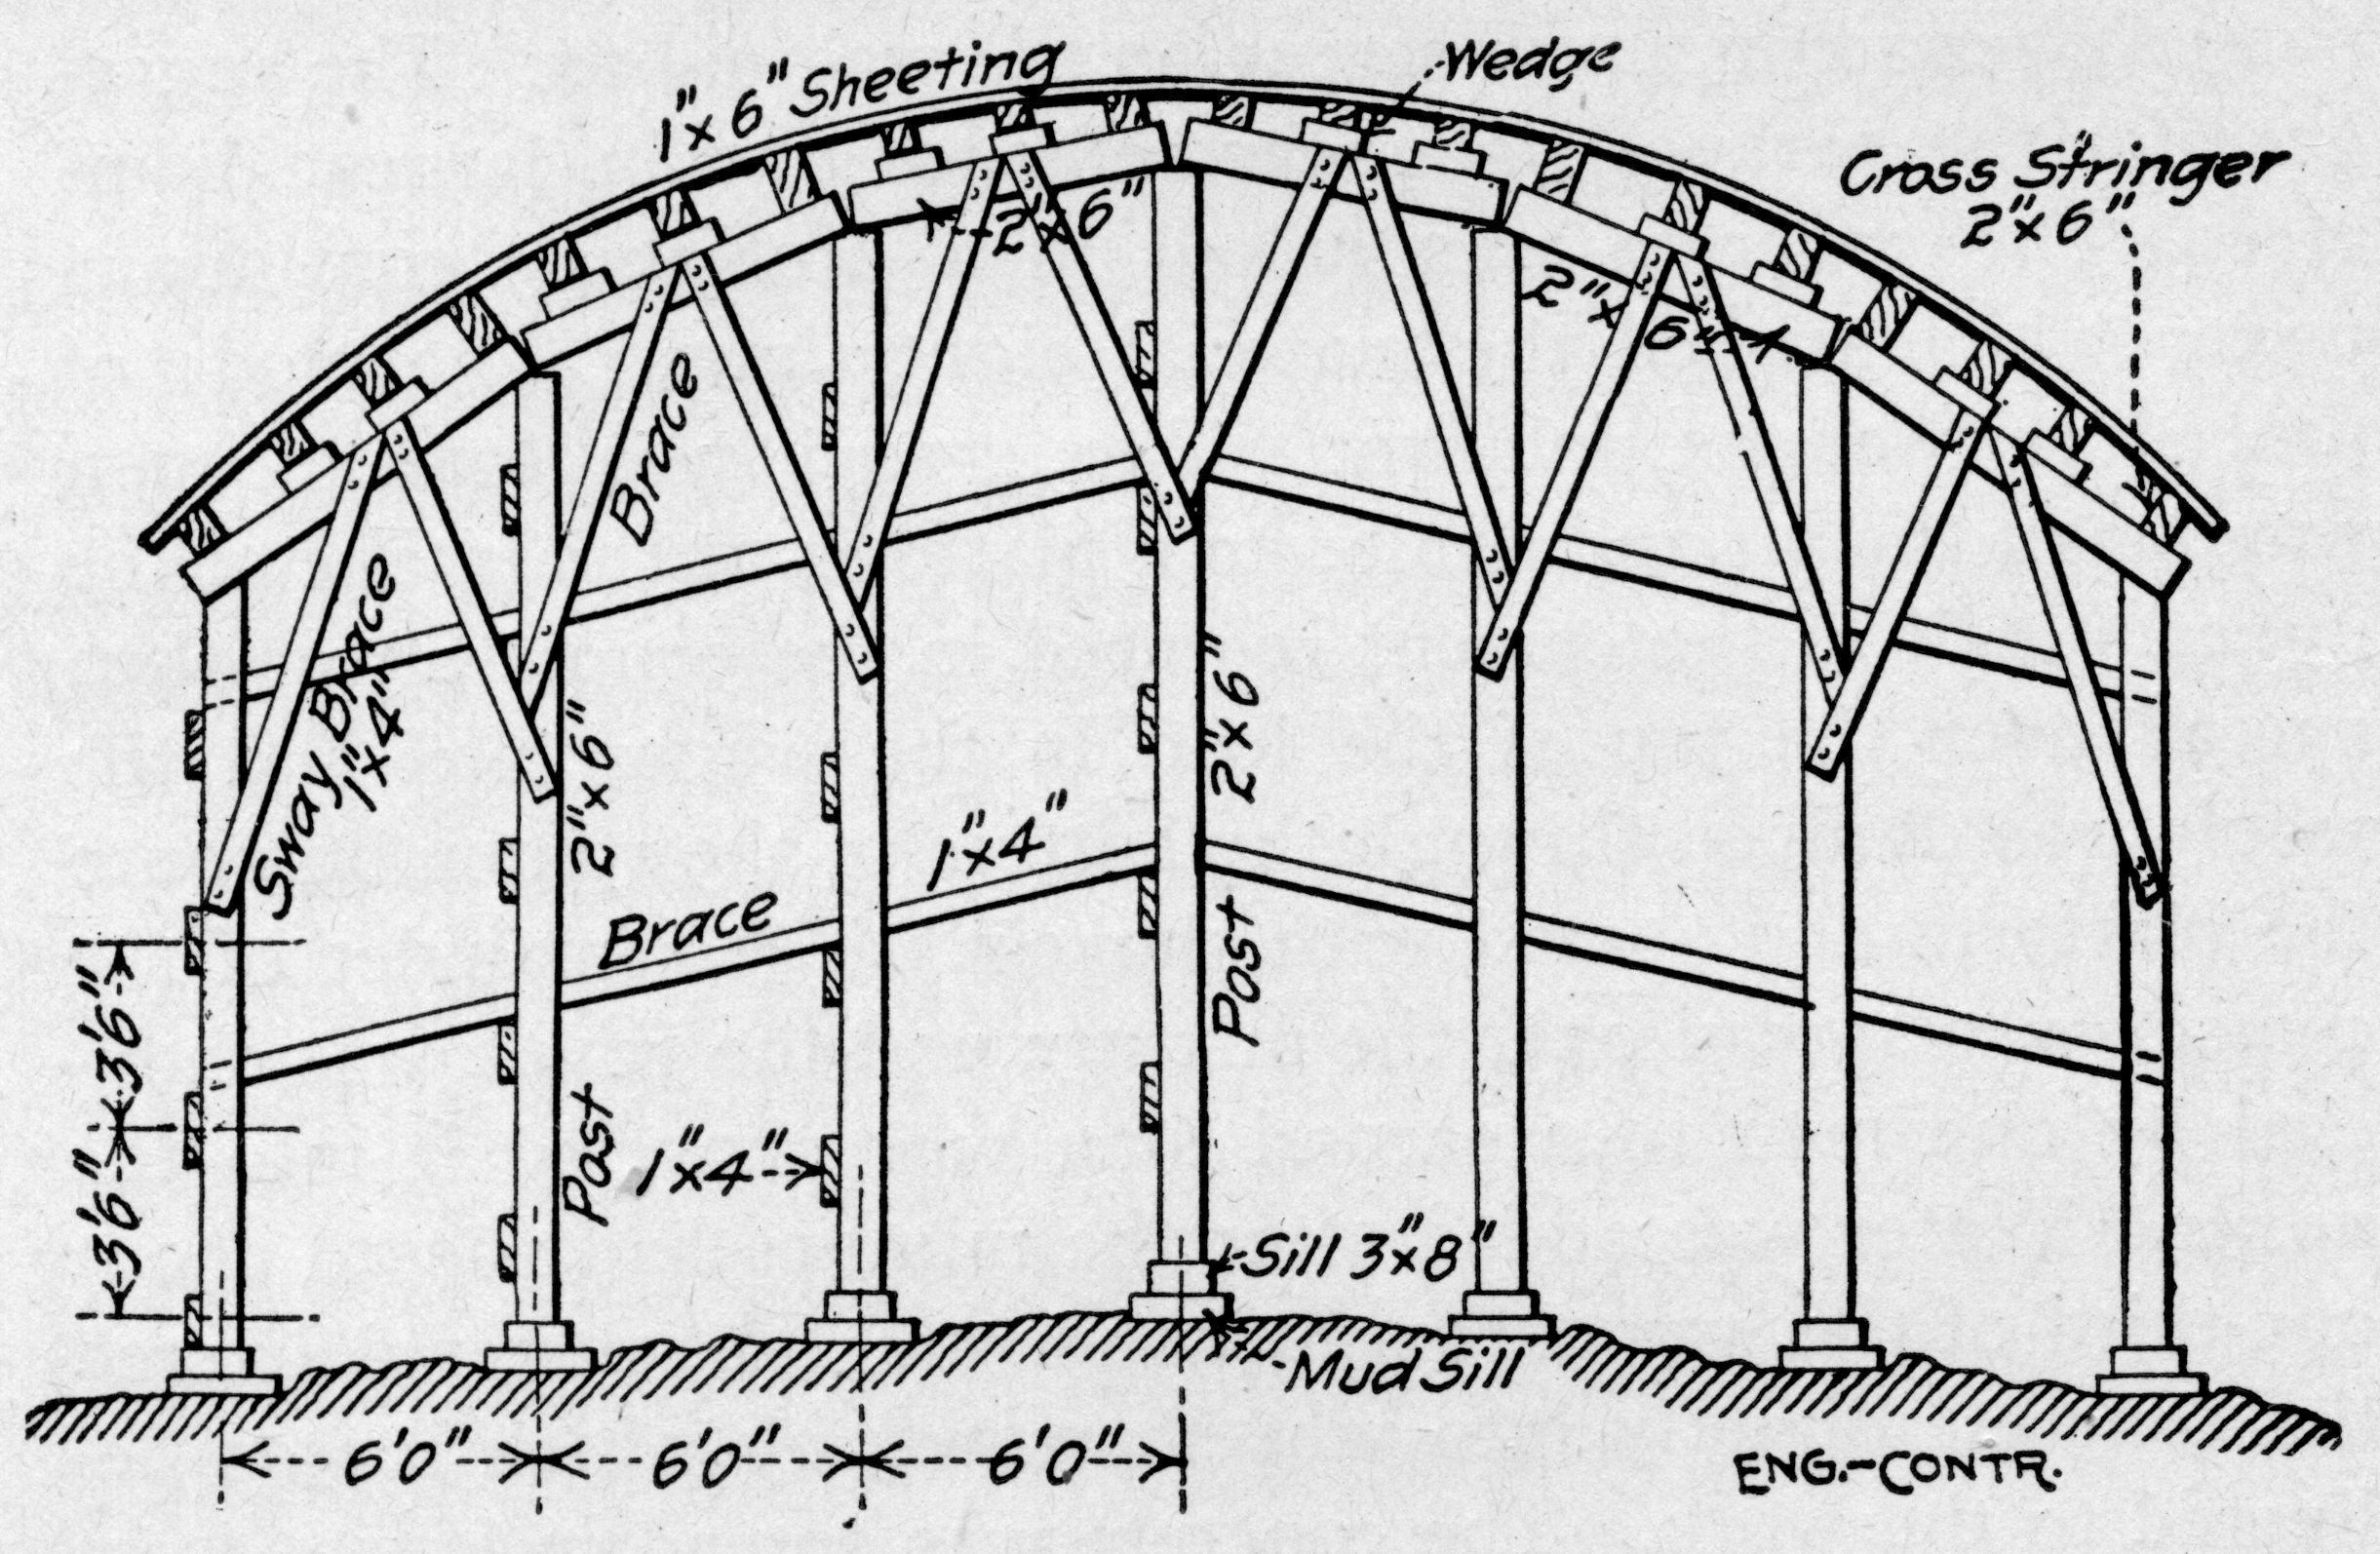 1"x 6" Sheeting
Wedge
Cross Stringer
2"x 6"
2"x 6"
2"x 6"
Brace
Sway Brace
1"x 4"
2"x 6"
2"x 6"
1"x 4"
Brace
Post
3'6"
3'6"
Post
1"x 4"
Sill 3"x 8"
Mud Sill
6'0"
6'0"
6'0"
ENG.-CONTR.